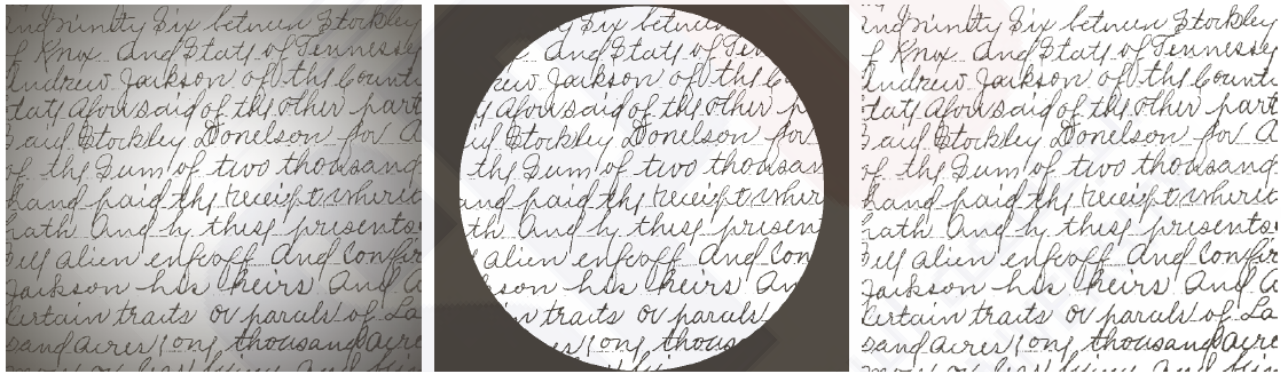 and ninety Six between Stockley
of Knox And State of Tennessee
Andrew Jackson of the Count
tate Aforesaid of the other part
said Stockley Donelson for a
of the Sum of two thousand
hand paid the receipt wheri
hath And by these presents
self alien enfeoff And Confir
Jackson his heirs And a
certain traits or parcels of La
sand acres (one thousand acre
Six between
And State of Ten
rew Jackson of the Co
te Aforesaid of the other p
id Stockley Donelson for
the Sum of two thousan
and paid the receipt wheri
th And by these presents
alien enfeoff And Con
son his heirs An
n traits or parcels
res (one thousa
and ninety Six between Stockley
of Knox And State of Tennessee
Andrew Jackson of the Count
tate Aforesaid of the other part
said Stockley Donelson for a
of the Sum of two thousand
hand paid the receipt wheri
hath And by these presents
self alien enfeoff And Confir
Jackson his heirs And a
certain traits or parcels of La
sand acres (one thousand acre